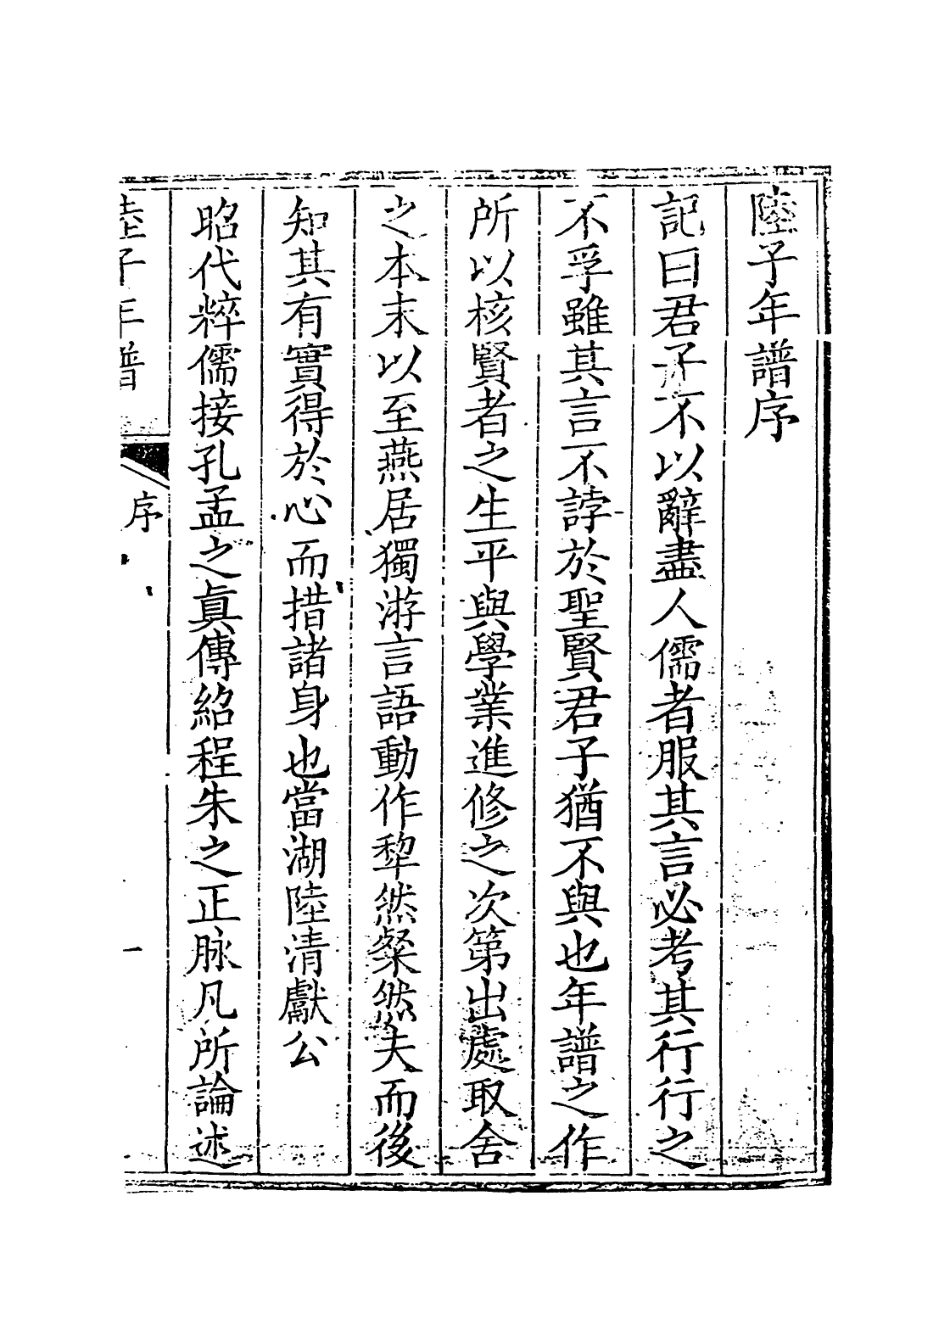 陸子年譜序
記曰君子不以辭盡人儒者服其言必考其行行之
不孚雖其言不誖於聖賢君子猶不與也年譜之作
所以核賢者之生平與學業進修之次第出處取舍
之本末以至燕居獨游言語動作犂然粲然夫而後
知其有實得於心而措諸身也當湖陸清獻公
昭代粹儒接孔孟之眞傳紹程朱之正脉凡所論述
陸子年譜
序
一